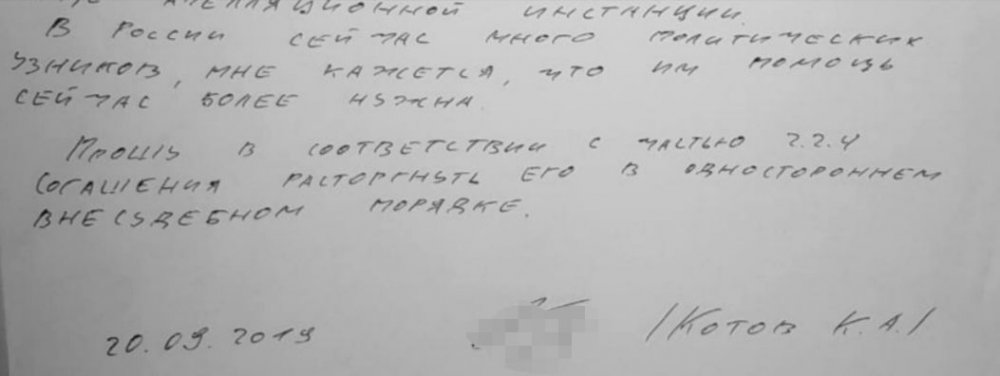 апелляционной инстанции.
В России сейчас много политических
узников, мне кажется, что им помощь
сейчас более нужна.
Прошу в соответствии с частью 2.2.4
Согашения расторгнуть его в одностороннем
внесудебном порядке.
20.09.2019 /Котов К.А./